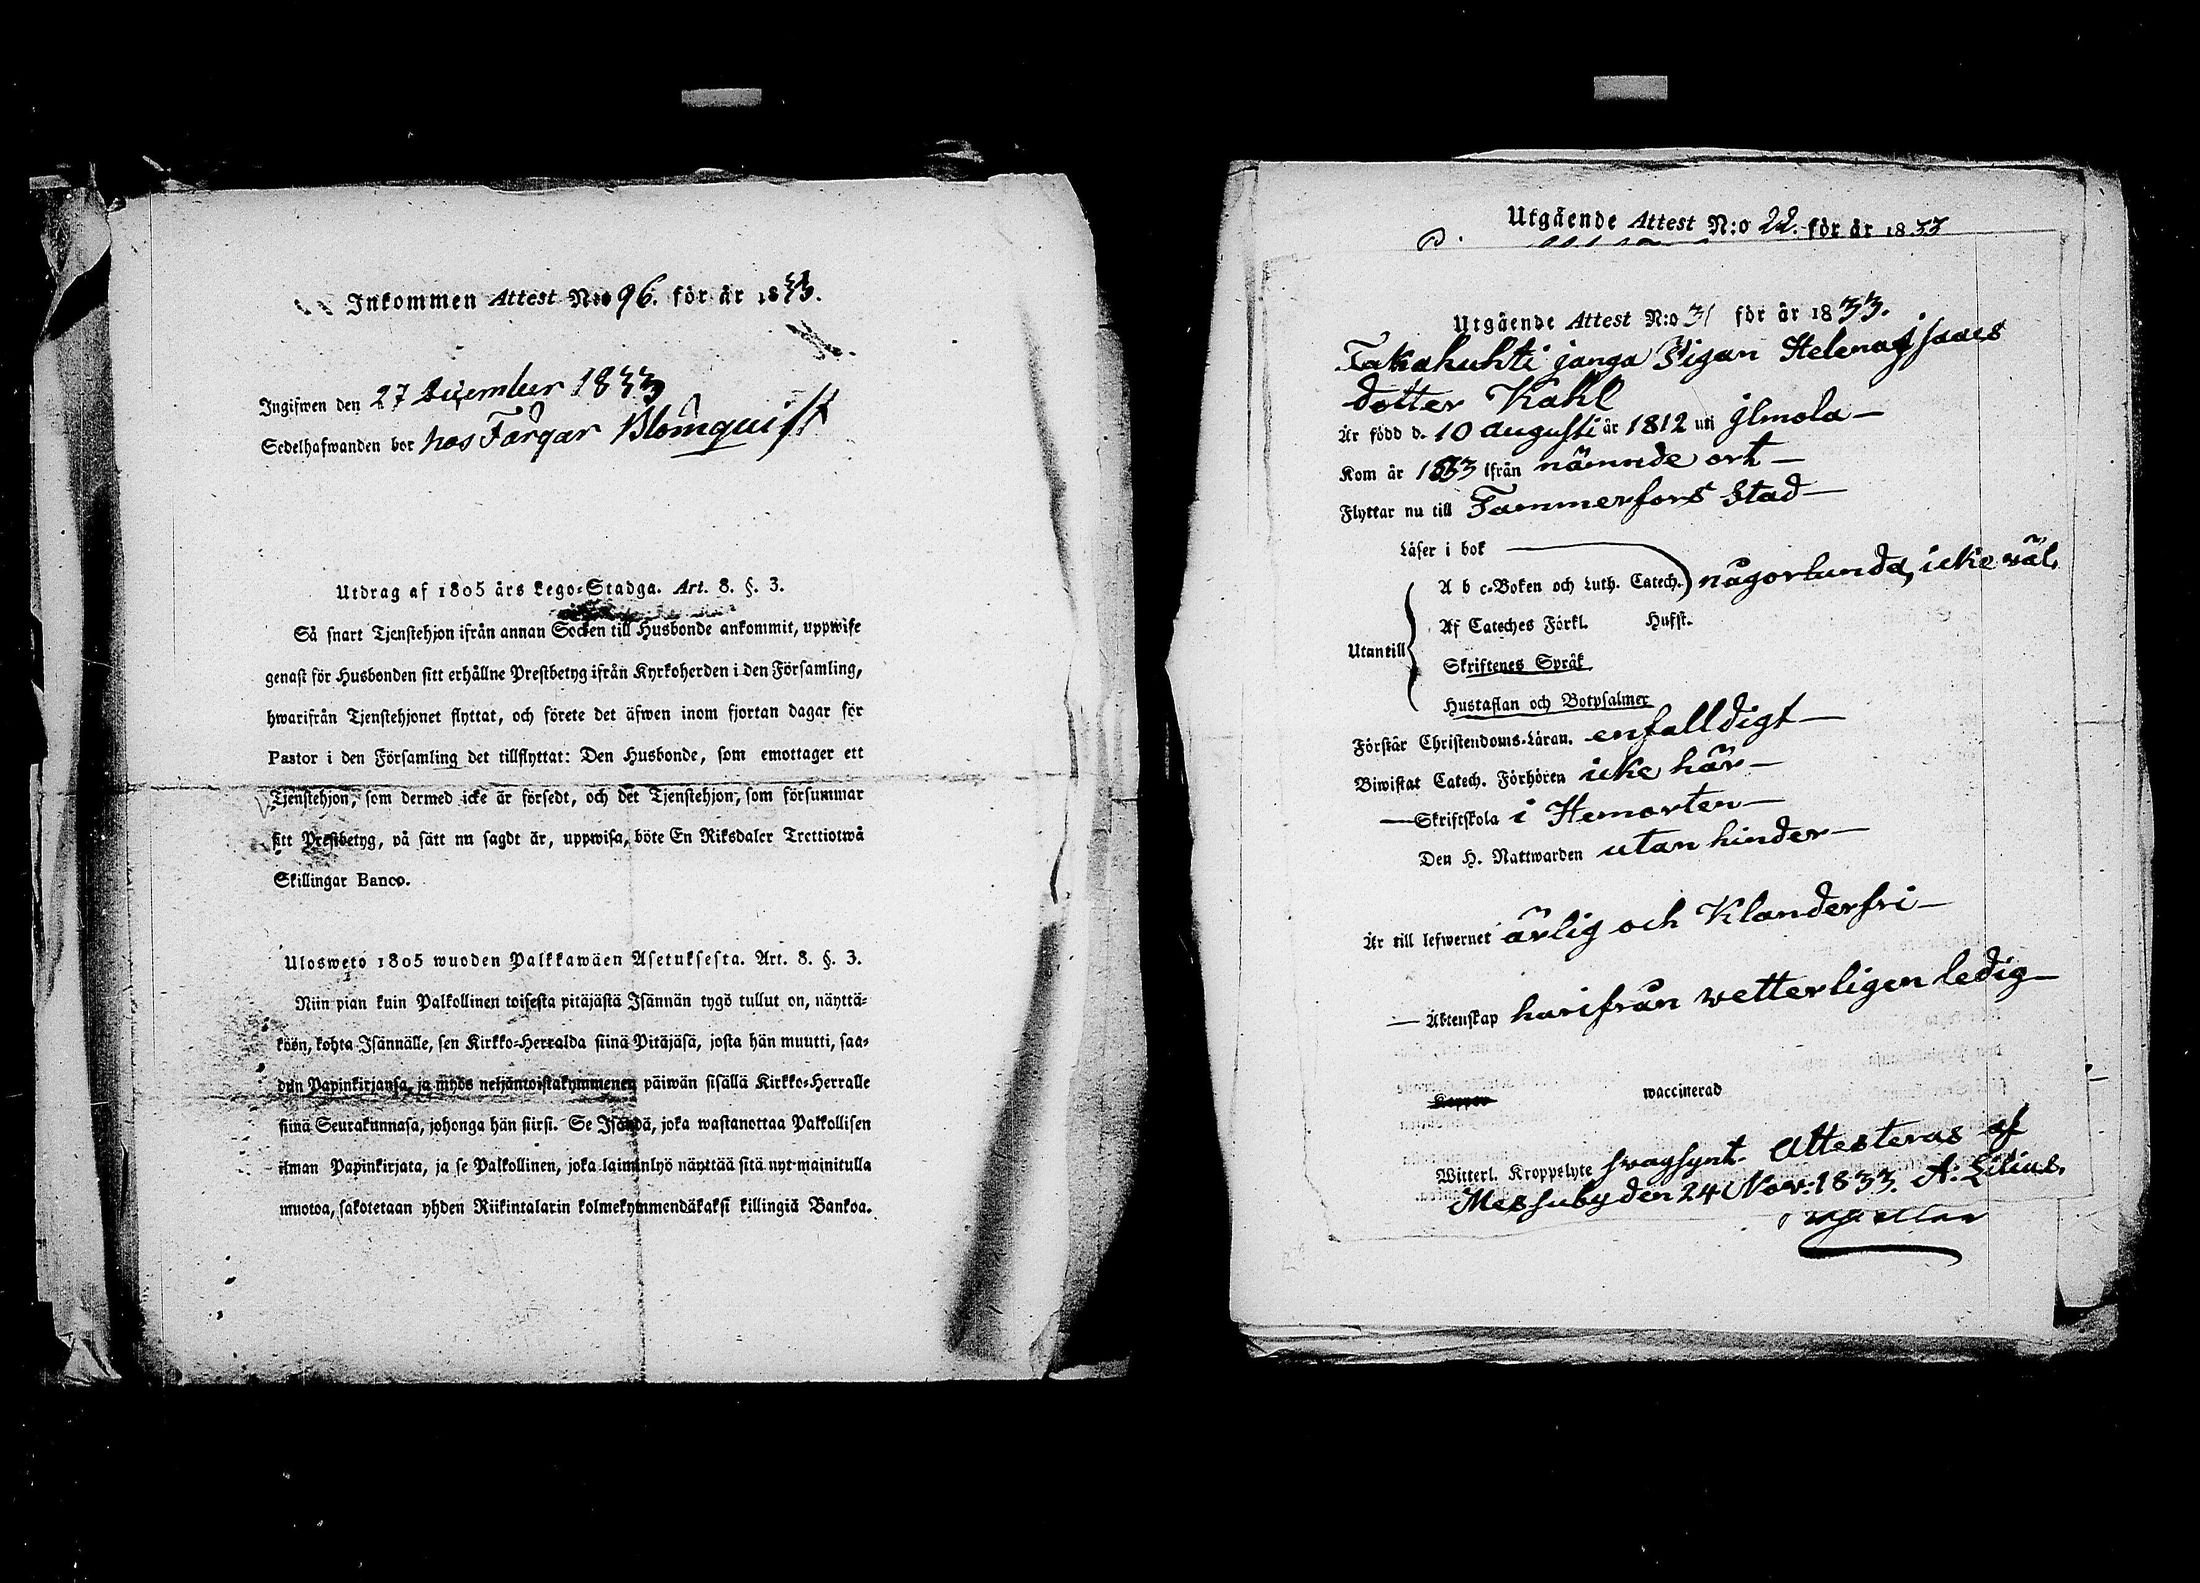 Inkommen Attest N:o 96. för år 1833.
Ingifwen den 27 December 1833
Sedelhafwanden bor hos Färgar Blomquist
Utdrag af 1805 års Lego-Stadga. Art. 8. §. 3.
Så snart Tjenstehjon ifrån annan Socken till Husbonde ankommit, uppwise
genast för Husbonden sitt erhållne Prestbetyg ifrån Kyrkoherden i den Församling,
hwarifrån Tjenstehjonet flyttat, och förete det äfwen inom fjortan dagar för
Pastor i den Församling det tillflyttat: Den Husbonde, som emottager ett
Tjenstehjon, som dermed icke är försedt, och det Tjenstehjon, som försummar
sitt Prestbetyg, på sätt nu sagdt är, uppwisa, böte En Riksdaler Trettiotwå
Skillingar Banco.
Uloswetö 1805 wuoden Palkkawäen Asetuksesta. Art. 8. §. 3.
Niin pian kuin Palkollinen toisesta pitäjästä Isännän tygö tullut on, näyttä-
köön, kohta Isännälle, sen Kirkko-Herralda siinä Pitäjäsä, josta hän muutti, saa-
dun Papinkirjansa, ja myös neljäntoistakymmenen päiwän sisällä Kirkko-Herralle
siinä Seurakunnasa, johonga hän siirsi. Se Isändä, joka wastanottaa Palkollisen
ilman Papinkirjata, ja se Palkollinen, joka laiminlyö näyttää sitä nyt mainitulla
muotoa, sakotetaan yhden Riikintalarin kolmekymmendäkaksi killingiä Bankoa.
Utgående Attest N:o 22. för år 1833
Utgående Attest N:o 31 för år 1833.
Takahuhti janga Pigan Helena Jsaacs
dotter Kahl
Är född d. 10 augusti år 1812 uti Jlmola
Kom år 1833 ifrån nämnde ort
Flyttar nu till Tammerfors Stad
Läser i bok
A b c-Boken och Luth. Catech. någorlunda, icke väl.
Af Cateches Förkl. Husst.
Utantill
Skriftenes Språk
Hustaflan och Botpsalmer
Förstår Christendoms-Läran. enfalldigt
Biwistat Catech. Förhören icke här
Skriftskola i Hemorten
Den H. Nattwarden utan hinder
Är till lefwernet ärlig och Klanderfri
Äktenskap härifrån wetterligen ledig
Koppor waccinerad
Witterl. Kroppslyte swagsynt. Attesteras af
Messuby den 24 Nov: 1833. A: Lilius.